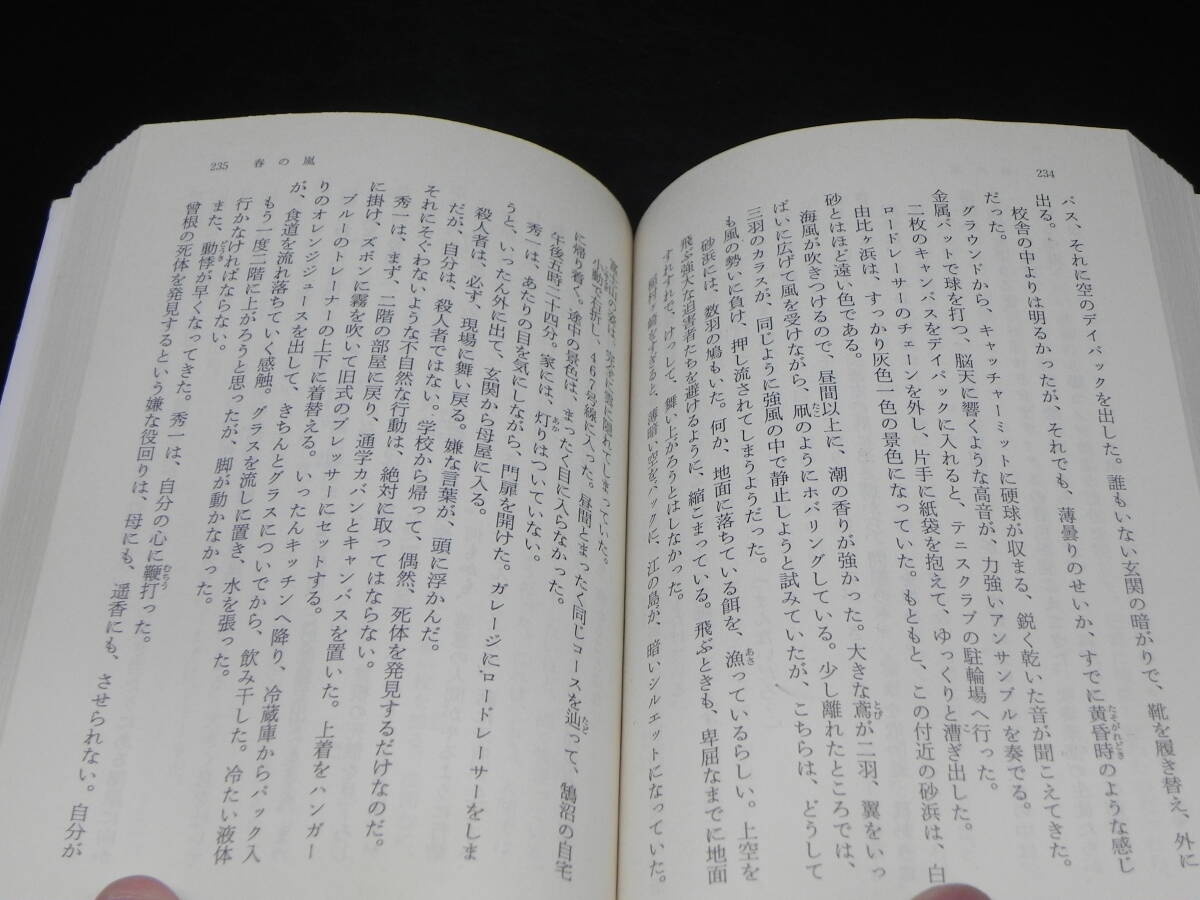 234
バス、それに空のデイパックを出した。誰もいない玄関の暗がりで、靴を履き替え、外に
出る。
校舎の中よりは明るかったが、それでも、薄曇りのせいか、すでに黄昏時のような感じ
たそがれどき
だった。
グラウンドから、キャッチャーミットに硬球が収まる、鋭く乾いた音が聞こえてきた。
金属バットで球を打つ、脳天に響くような高音が、力強いアンサンブルを奏でる。
二枚のキャンバスをデイパックに入れると、テニスクラブの駐輪場へ行った。
ロードレーサーのチェーンを外し、片手に紙袋を抱えて、ゆっくりと漕ぎ出した。
こ
由比ヶ浜は、すっかり灰色一色の景色になっていた。もともと、この付近の砂浜は、白
砂とはほど遠い色である。
海風が吹きつけるので、昼間以上に、潮の香りが強かった。大きな鳶が二羽、翼をいっ
とび
ぱいに広げて風を受けながら、凧のようにホバリングしている。少し離れたところでは、
たこ
三羽のカラスが、同じように強風の中で静止しようと試みていたが、こちらは、どうして
も風の勢いに負け、押し流されてしまうようだった。
砂浜には、数羽の鳩もいた。何か、地面に落ちている餌を、漁っているらしい。上空を
あさ
飛ぶ強大な迫害者たちを避けるように、縮こまっている。飛ぶときも、卑屈なまでに地面
すれすれで、けっして、舞い上がろうとはしなかった。
稲村ヶ崎をすぎると、薄暗い空をバックに、江の島が、暗いシルエットになっていた。
235 春の嵐
富士山の姿は、完全に雲に隠れてしまっていた。
小動で右折し、467号線に入った。昼間とまったく同じコースを辿って、鵠沼の自宅
たど
に帰り着く。途中の景色は、まったく目に入らなかった。
午後五時二十四分。家には、灯りはついていない。
あか
秀一は、あたりの目を気にしながら、門扉を開けた。ガレージにロードレーサーをしま
うと、いったん外に出て、玄関から母屋に入る。
殺人者は、必ず、現場に舞い戻る。嫌な言葉が、頭に浮かんだ。
だが、自分は、殺人者ではない。学校から帰って、偶然、死体を発見するだけなのだ。
それにそぐわないような不自然な行動は、絶対に取ってはならない。
秀一は、まず、二階の部屋に戻り、通学カバンとキャンバスを置いた。上着をハンガー
に掛け、ズボンに霧を吹いて旧式のプレッサーにセットする。
ブルーのトレーナーの上下に着替える。いったんキッチンへ降り、冷蔵庫からパック入
りのオレンジジュースを出して、きちんとグラスについでから、飲み干した。冷たい液体
が、食道を流れ落ちていく感触。グラスを流しに置き、水を張った。
もう一度二階に上がろうと思ったが、脚が動かなかった。
行かなければならない。
また、動悸が早くなってきた。秀一は、自分の心に鞭打った。
どうき
むちう
曾根の死体を発見するという嫌な役回りは、母にも、遥香にも、させられない。自分が